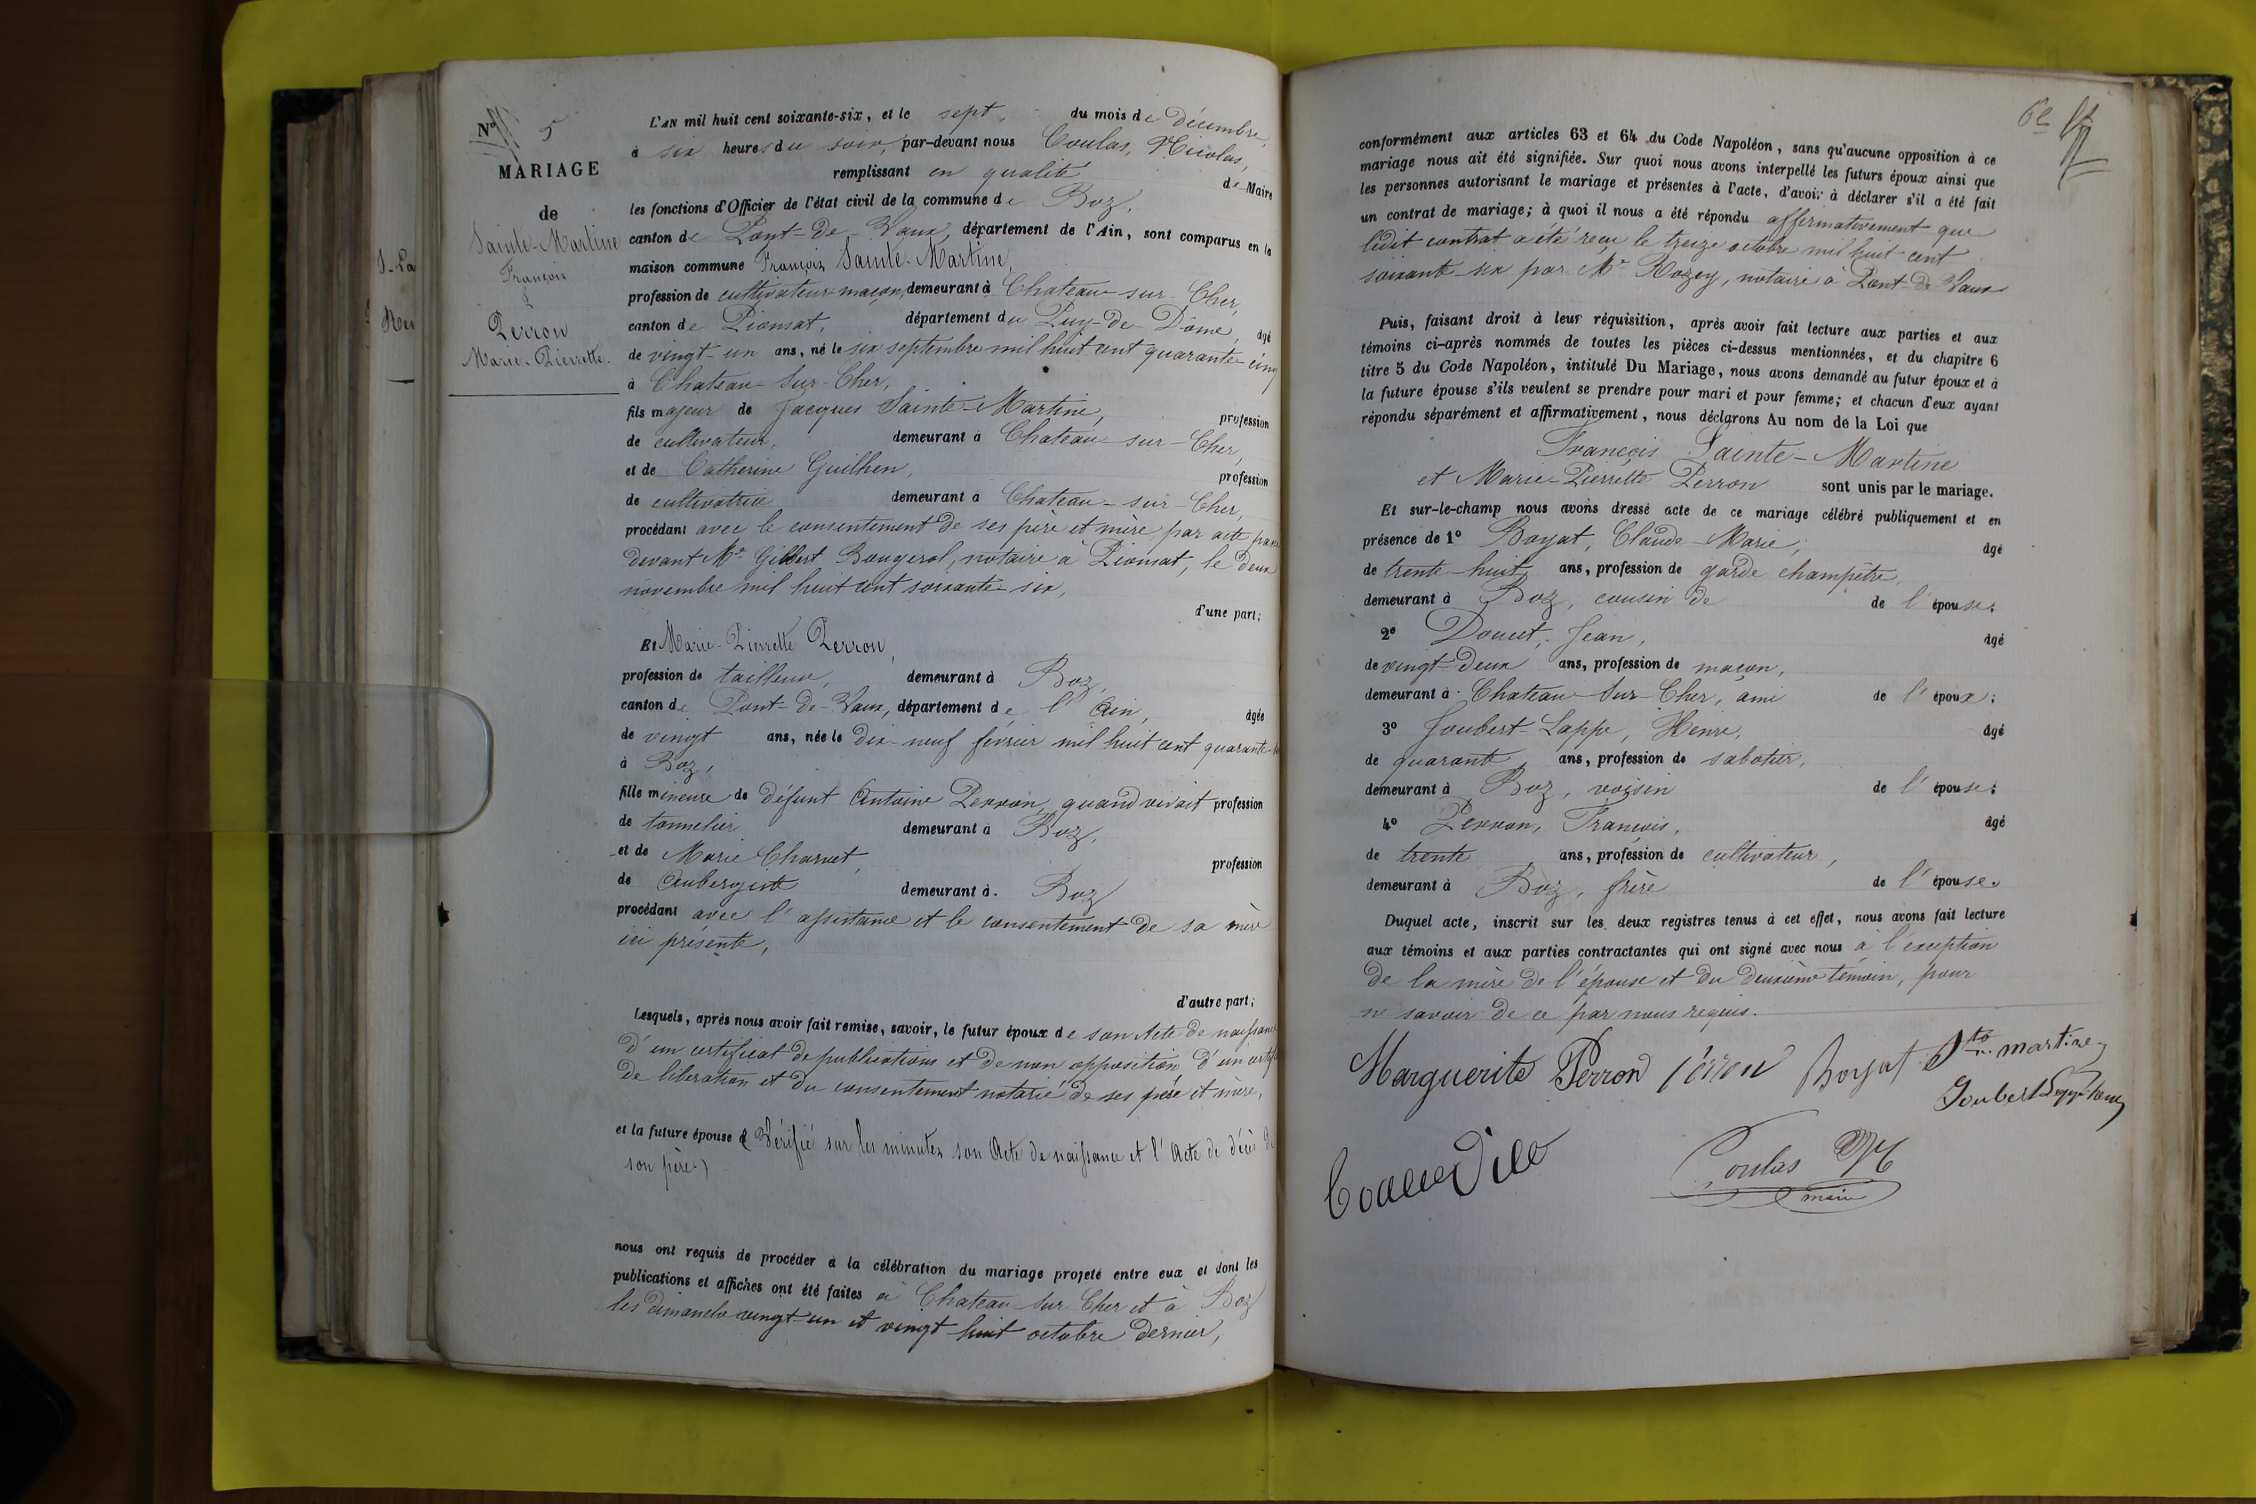 S-La
Rei
Nº 5
MARIAGE
de
Sainte-Martine
François
&
Perron
Marie-Pierrette.
L'AN mil huit cent soixante-six, et le sept, du mois de décembre,
à six heures du soir, par-devant nous Coulas, Nicolas,
remplissant en qualité de Maire
les fonctions d'Officier de l'état civil de la commune de Boz,
canton de Pont-de-Vaux, département de l'Ain, sont comparus en la
maison commune François Sainte-Martine,
profession de cultivateur-maçon, demeurant à Chateau-sur-Cher,
canton de Pionsat, département du Puy-de-Dôme, âgé
de vingt-un ans, né le six septembre mil huit cent quarante-cinq
à Chateau-Sur-Cher,
fils majeur de Jacques Sainte-Martine, profession
de cultivateur, demeurant à Chateau-sur-Cher,
et de Catherine Guilhen, profession
de cultivatrice demeurant à Chateau-sur-Cher,
procédant avec le consentement de ses père et mère, par acte passé
devant Me Gilbert Bougerol, notaire à Pionsat, le deux
novembre mil huit cent soixante-six,
d'une part;
Et Marie-Pierrette Perron,
profession de tailleuse, demeurant à Boz,
canton de Pont-de-Vaux, département de l'Ain, âgée
de vingt ans, née le dix-neuf février mil huit cent quarante
à Boz,
fille mineure de défunt Antoine Perron, quand vivait profession
de tonnelier demeurant à Boz,
et de Marie Charvet, profession
de Aubergiste demeurant à Boz
procédant avec l'assistance et le consentement de sa mère
ici présente,
d'autre part;
Lesquels, après nous avoir fait remise, savoir, le futur époux de son Acte de naissance
d'un certificat de publications et de non opposition, d'un certificat
de libération et du consentement notarié de ses père et mère,
et la future épouse (Vérifié sur les minutes son Acte de naissance et l'Acte de décès de
son père)
nous ont requis de procéder à la célébration du mariage projeté entre eux et dont les
publications et affiches ont été faites à Chateau-sur-Cher et à Boz
les dimanche vingt-un et vingt-huit octobre dernier,
conformément aux articles 63 et 64 du Code Napoléon, sans qu'aucune opposition à ce
mariage nous ait été signifiée. Sur quoi nous avons interpellé les futurs époux ainsi que
les personnes autorisant le mariage et présentes à l'acte, d'avoir à déclarer s'il a été fait
un contrat de mariage; à quoi il nous a été répondu affirmativement que
ledit contrat a été reçu le treize octobre mil huit cent
soixante-six par Me Rozey, notaire à Pont-de-Vaux
Puis, faisant droit à leur réquisition, après avoir fait lecture aux parties et aux
témoins ci-après nommés de toutes les pièces ci-dessus mentionnées, et du chapitre 6
titre 5 du Code Napoléon, intitulé Du Mariage, nous avons demandé au futur époux et à
la future épouse s'ils veulent se prendre pour mari et pour femme; et chacun d'eux ayant
répondu séparément et affirmativement, nous déclarons Au nom de la Loi que
François Sainte-Martine
et Marie-Pierrette Perron sont unis par le mariage.
Et sur-le-champ nous avons dressé acte de ce mariage célébré publiquement et en
présence de 1º Boyat, Claude-Marie, âgé
de trente-huit ans, profession de garde champêtre,
demeurant à Boz, cousin de de l'épouse;
2º Doucet, Jean, âgé
de vingt-deux ans, profession de maçon,
demeurant à Chateau-Sur-Cher, ami de l'époux;
3º Joubert-Lappe, Henri, âgé
de quarante ans, profession de sabotier,
demeurant à Boz, voisin de l'épouse;
4º Perron, François, âgé
de trente ans, profession de cultivateur,
demeurant à Boz, frère de l'épouse.
Duquel acte, inscrit sur les deux registres tenus à cet effet, nous avons fait lecture
aux témoins et aux parties contractantes qui ont signé avec nous à l'exception
de la mère de l'épouse et du deuxième témoin, pour
ne savoir de ce par nous requis.
Marguerite Perron Perron Boyat Ste martine
Joubert Lappe henri
Coulas N
maire